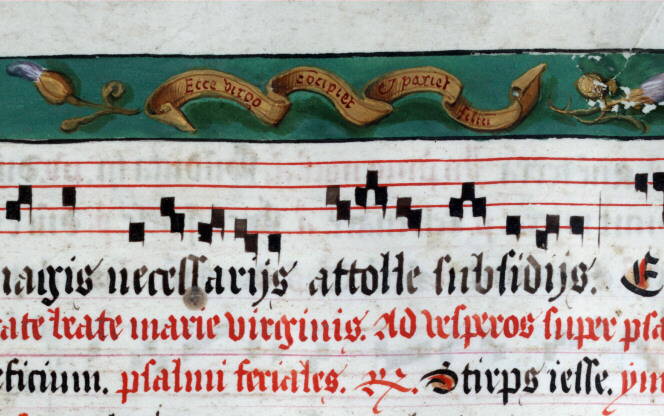 Ecce virgo cōcipiet & pariet filiū
magis necessarijs attolle subsidijs. E
ate beate marie virginis. Ad vesperos super psa
eficium. psalmi feriales. R. Stirps iesse. ym